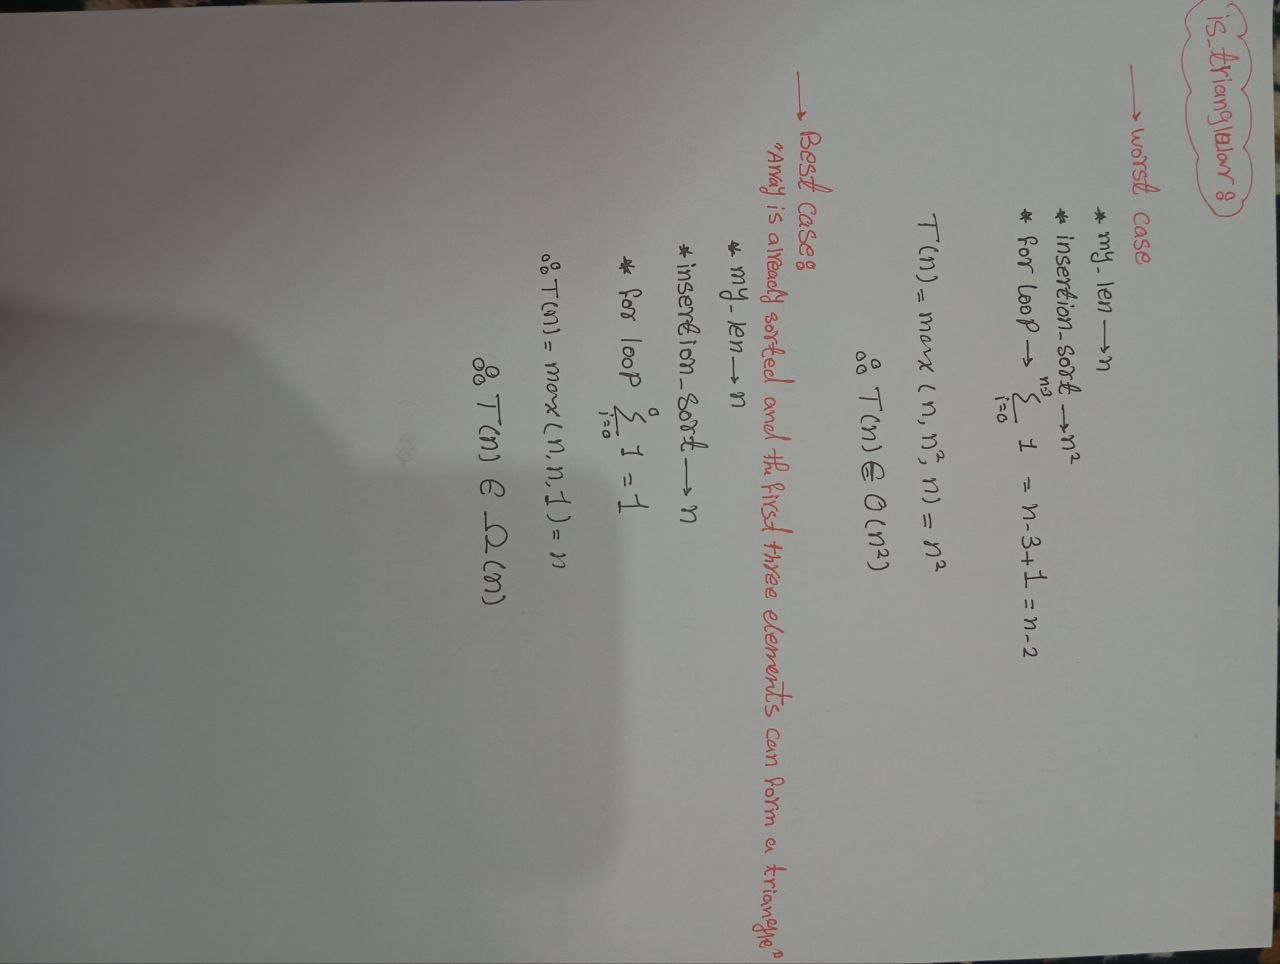 is_trianglular:
→ worst case
* my_len → n
* insertion_sort → n²
* for loop → n-3 ∑ i=0 1 = n-3+1 = n-2
T(n) = max (n, n², n) = n²
∴ T(n) ∈ O(n²)
→ Best case:
"Array is already sorted and the first three elements can form a triangle"
* my_len → n
* insertion_sort → n
* for loop 0 ∑ i=0 1 = 1
∴ T(n) = max (n, n, 1) = n
∴ T(n) ∈ Ω(n)